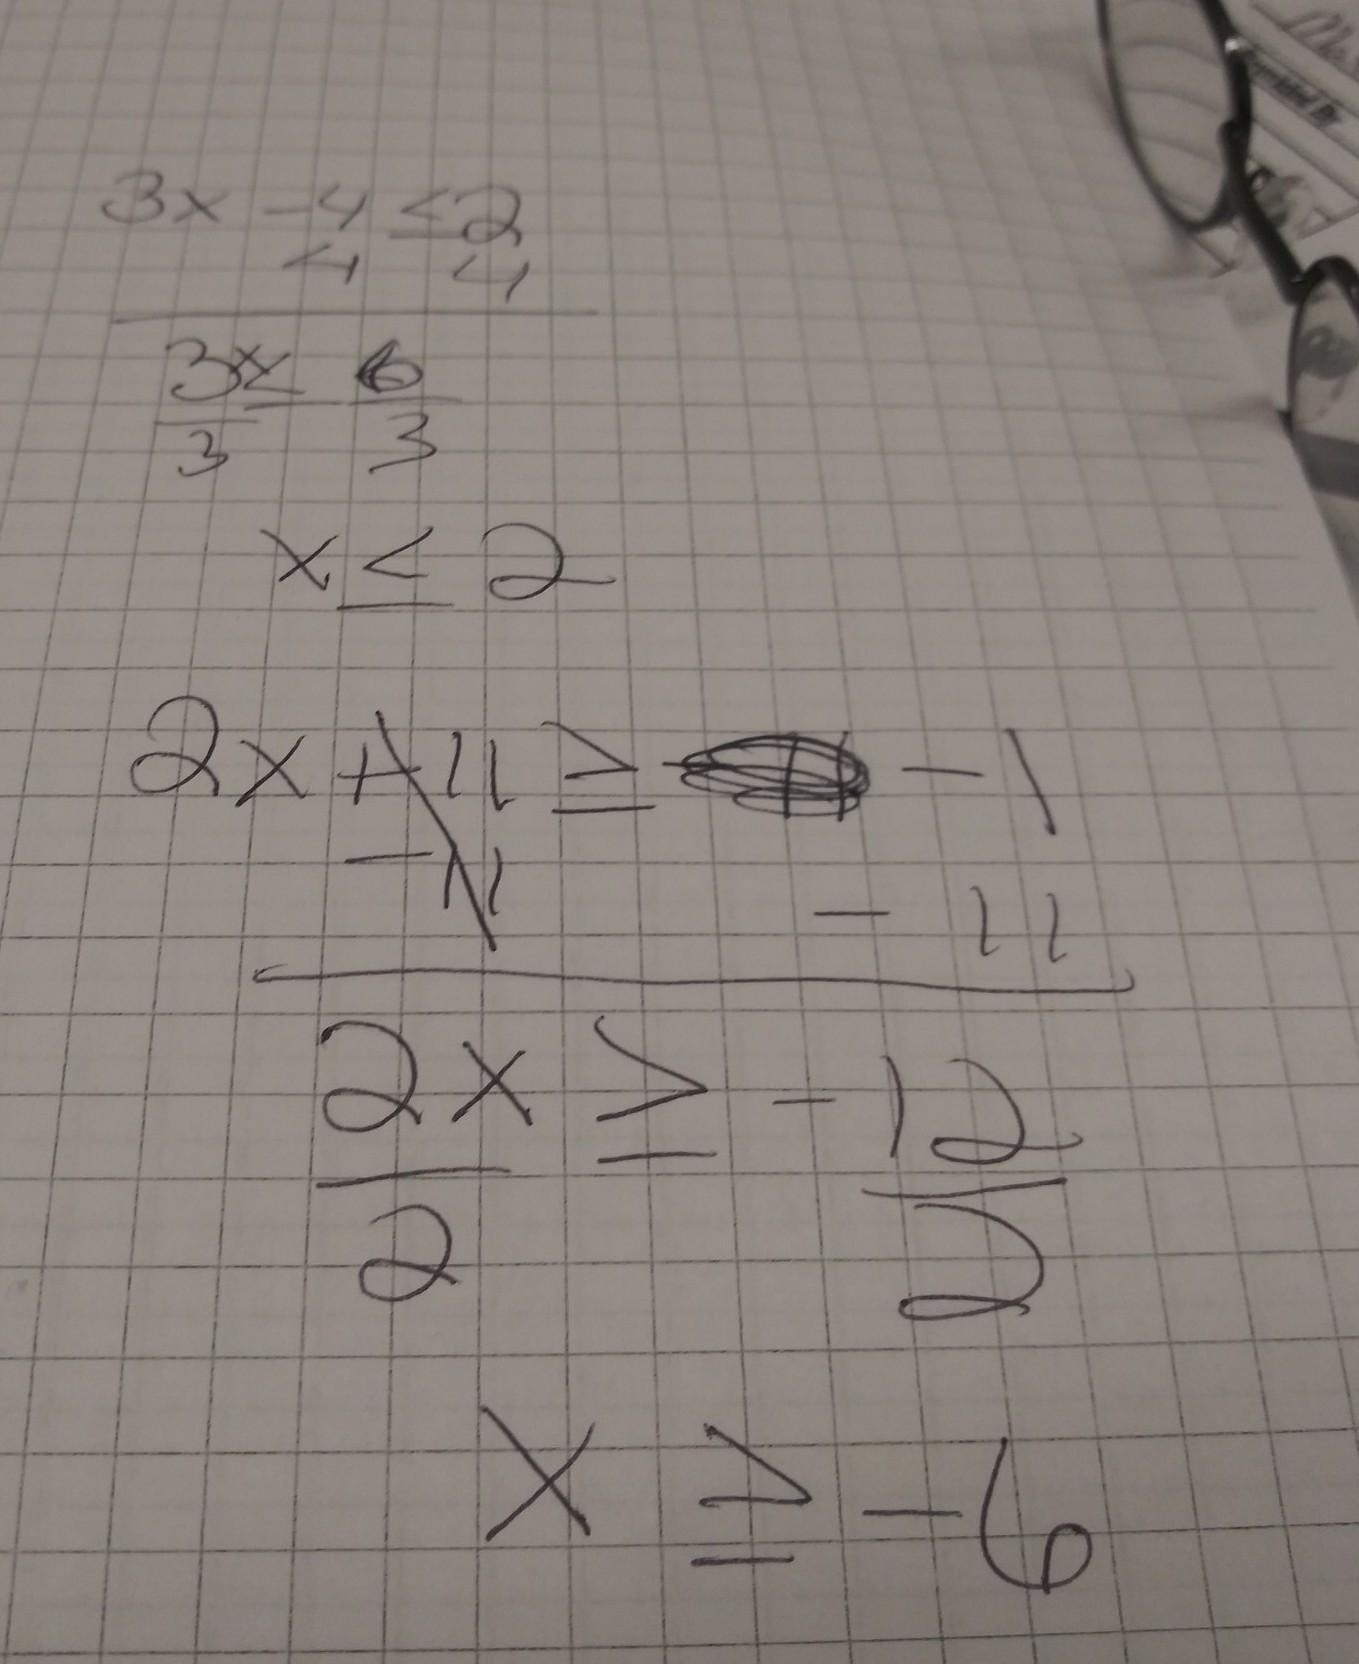 3x - 4 ≤ 2
4 4
3x ≤ 6
3 3
x ≤ 2
2x + 11 ≥ - 1
- 11 - 11
2x ≥ - 12
2 2
x ≥ - 6